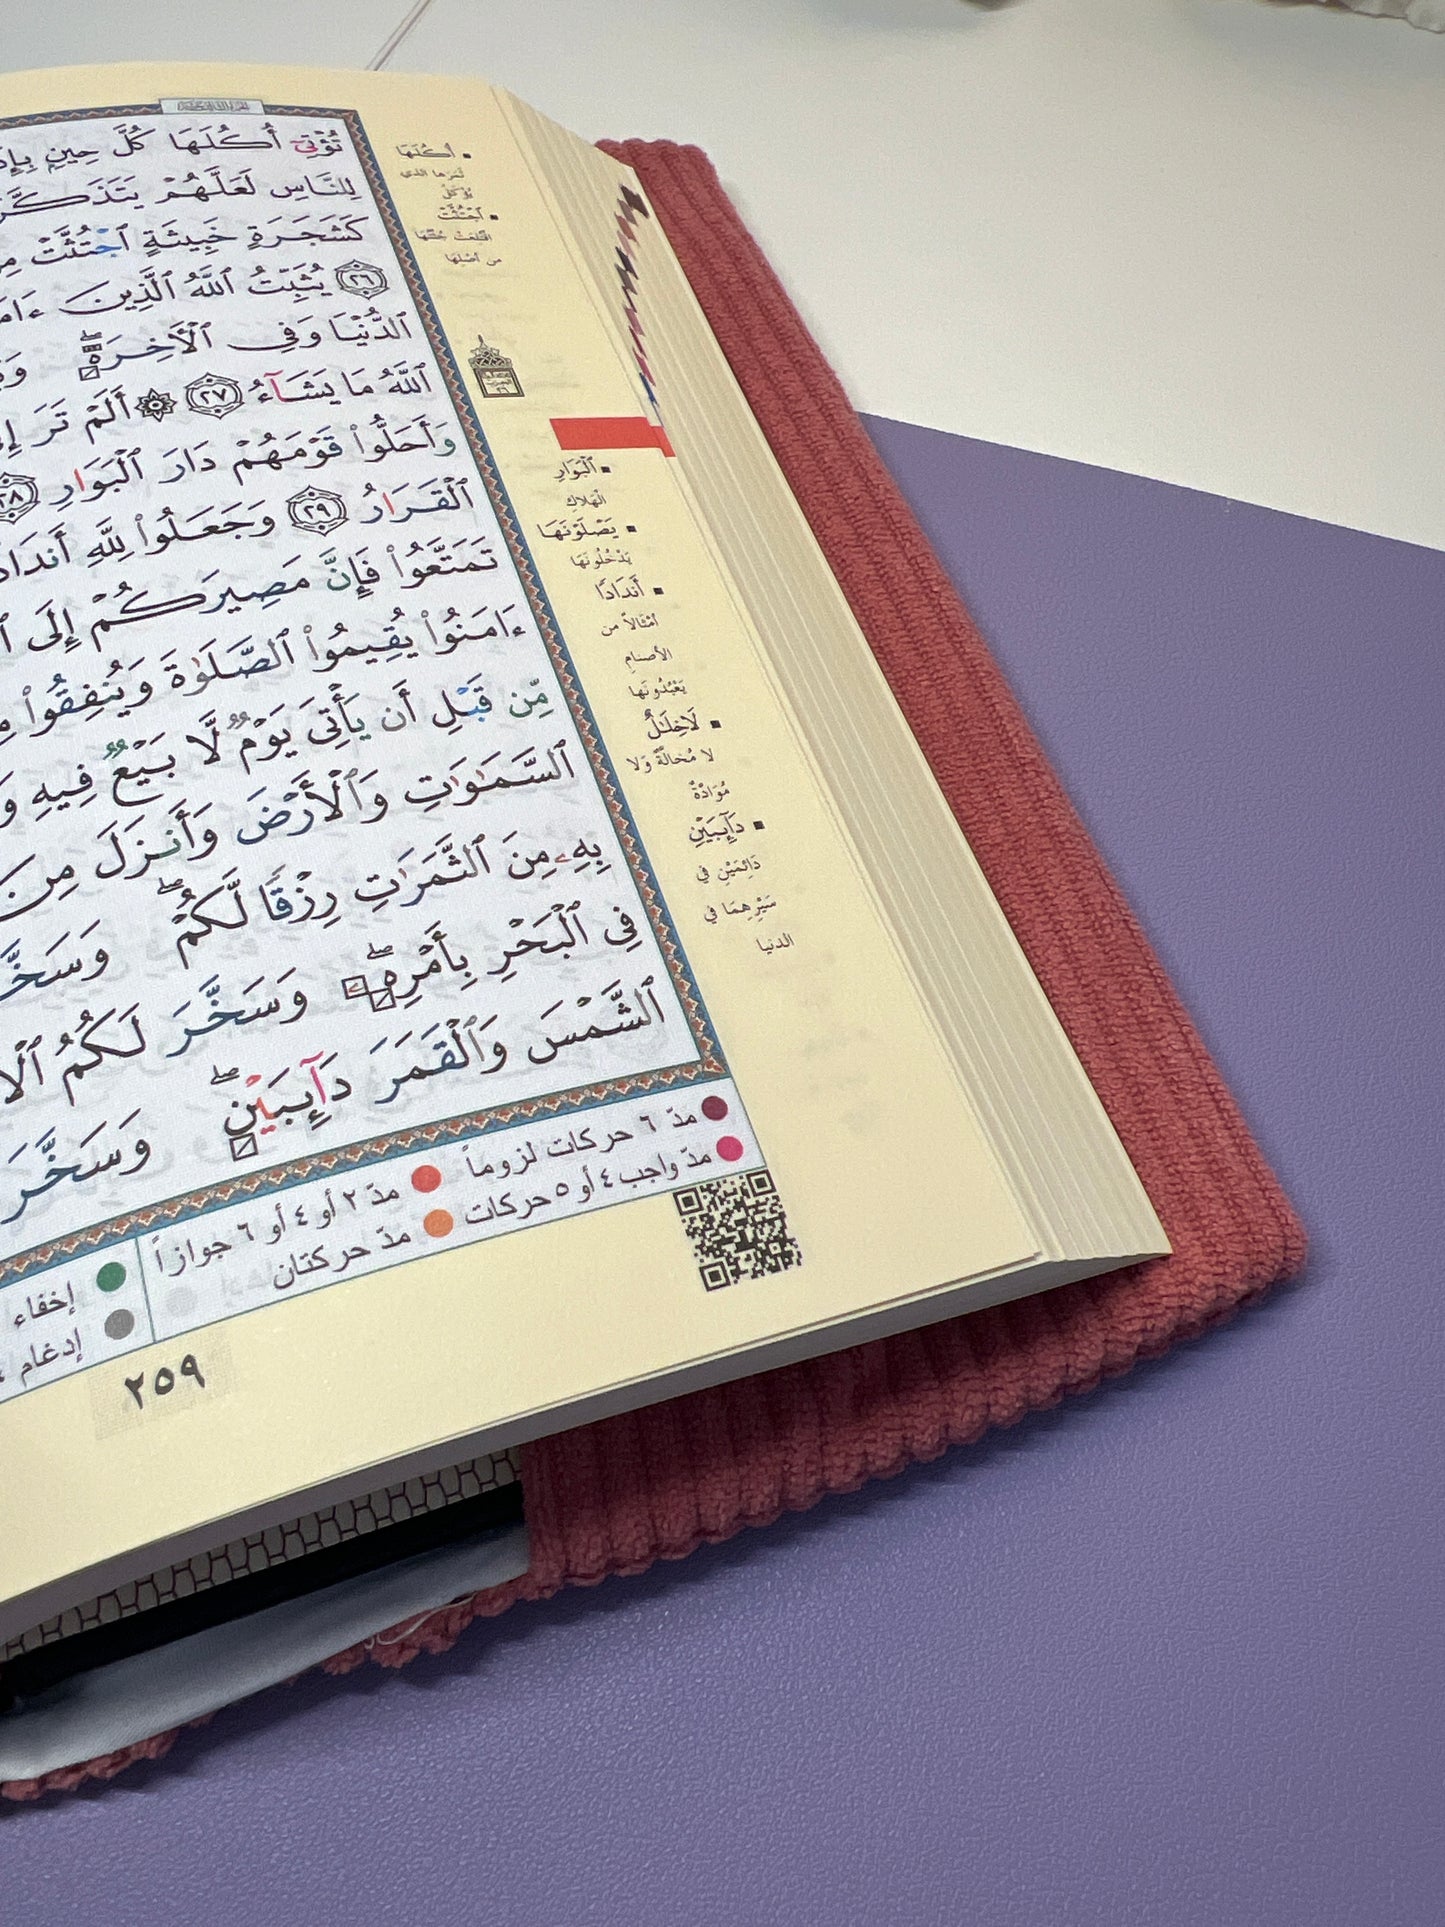 تُؤْتِىٓ أُكُلَهَا كُلَّ حِينٍۭ
لِلنَّاسِ لَعَلَّهُمْ
كَشَجَرَةٍ خَبِيثَةٍ ٱجْتُثَّتْ
٢٦ يُثَبِّتُ ٱللَّهُ ٱلَّذِينَ
ٱلدُّنْيَا وَفِى ٱلْأَخِرَةِ
ٱللَّهُ مَا يَشَآءُ ٢٧ أَلَمْ تَرَ
وَأَحَلُّوا۟ قَوْمَهُمْ دَارَ ٱلْبَوَارِ
ٱلْقَرَارُ ٢٩ وَجَعَلُوا۟ لِلَّهِ
تَمَتَّعُوا۟ فَإِنَّ مَصِيرَكُمْ إِلَى
ءَامَنُوا۟ يُقِيمُوا۟ ٱلصَّلَوٰةَ وَيُنفِقُوا۟
مِّن قَبْلِ أَن يَأْتِىَ يَوْمٌ لَّا بَيْعٌ فِيهِ
ٱلسَّمَٰوَٰتِ وَٱلْأَرْضَ وَأَنزَلَ مِنَ
بِهِۦ مِنَ ٱلثَّمَرَٰتِ رِزْقًا لَّكُمْ ۖ
فِى ٱلْبَحْرِ بِأَمْرِهِۦ ۖ وَسَخَّرَ لَكُمُ
ٱلشَّمْسَ وَٱلْقَمَرَ دَآئِبَيْنِ ۖ وَسَخَّرَ
أُكُلَهَا
ٱجْتُثَّتْ
من أصلها
ٱلْبَوَارِ
الهلاك
يَصْلَوْنَهَا
يَدْخُلُونَهَا
أَندَادًا
أمْثَالاً من
الأصنام
يَعْبُدُونَها
لَا خِلَٰلٌ
لا مُخالّةٌ ولا
مُوَادّةٌ
دَآئِبَيْنِ
دَائِمَيْنِ في
سَيْرِهِمَا في
الدنيا
مدّ ٦ حركات لزوماً
مدّ واجب ٤ أو ٥ حركات
مدّ ٢ أو ٤ أو ٦ جوازاً
مدّ حركتان
إخفاء
إدغام
٢٥٩